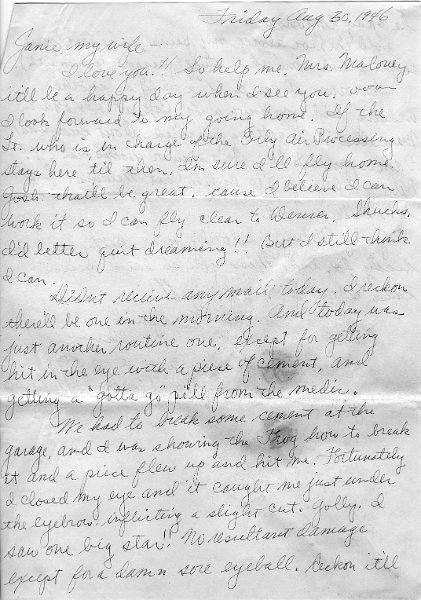 Friday Aug 30, 1946
Janie my wife -
I love you!! So help me, Mrs. Maloney
it'll be a happy day when I see you.
I look forward to my going home. If the
Lt. who is in charge of the Air Processing
stays here 'til then, I'm sure I'll fly home.
Gosh that'll be great, 'cause I beleave I can
work it so I can fly clear to Denver. Shucks,
I'd better quit dreaming!! But I still think
I can.
Didn't receive any mail today. I reckon
there'll be one in the morning. And today was
just another routine one, except for getting
hit in the eye with a piece of cement, and
getting a "gotta go" pill from the medic.
We had to break some cement at the
garage, and I was showing the how to break
it and a piece flew up and hit me. Fortunately
I closed my eye and it caught me just under
the eyebrow inflicting a slight cut. Golly, I
saw one big star!! No resultant damage
except for a damn sore eyeball. Reckon it'll